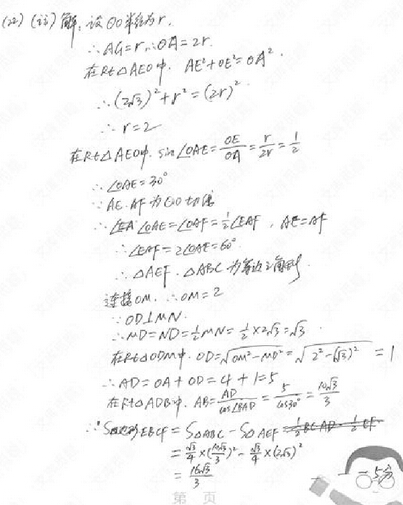 (22) (ii) 解:设⊙O半径为r.
∴AG=r,∴OA=2r.
在Rt△AEO中. AE²+OE²=OA².
∴(2√3)²+r²=(2r)²
∴r=2
在Rt△AEO中. sin∠OAE=OE/OA=r/2r=1/2
∴∠OAE=30°
∵AE.AF为⊙O切线
∴∠OAE=∠OAF=1/2∠EAF,AE=AF
∴∠EAF=2∠OAE=60°
∴△AEF.△ABC为等边三角形.
连接OM.∴OM=2
∵OD⊥MN.
∴MD=ND=1/2MN=1/2×2√3=√3.
在Rt△ODM中. OD=√(OM²-MD²)=√(2²-(√3)²)=1
∴AD=OA+OD=4+1=5
在Rt△ADB中. AB=AD/cos∠BAD=5/cos30°=10√3/3
∴S四边形EBCF=S△ABC-S△AEF
=√3/4×(10√3/3)²-√3/4×(2√3)²
=16√3/3
—5分
第 页